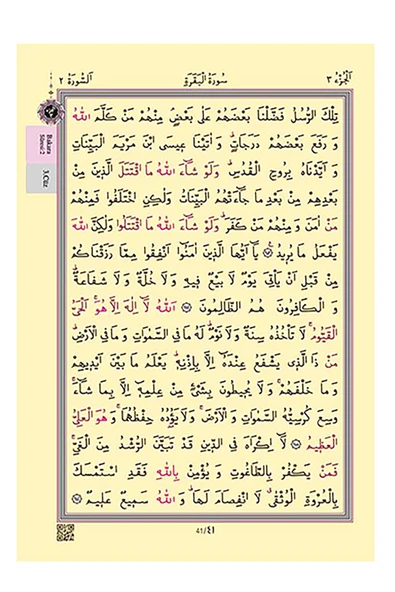 اَلْجُزْءُ ٣
سُورَةُ الْبَقَرَةِ
اَلسُّورَةُ ٢
Bakara
Sûresi: 2
3.Cüz
تِلْكَ الرُّسُلُ فَضَّلْنَا بَعْضَهُمْ عَلٰى بَعْضٍ مِنْهُمْ مَنْ كَلَّمَ اللّٰهُ
وَ رَفَعَ بَعْضَهُمْ دَرَجَاتٍ وَ اٰتَيْنَا عِيسَى ابْنَ مَرْيَمَ الْبَيِّنَاتِ
وَ اَيَّدْنَاهُ بِرُوحِ الْقُدُسِ وَلَوْ شَاۤءَ اللّٰهُ مَا اقْتَتَلَ الَّذِينَ مِنْ
بَعْدِهِمْ مِنْ بَعْدِ مَا جَاۤءَتْهُمُ الْبَيِّنَاتُ وَلٰكِنِ اخْتَلَفُوا فَمِنْهُمْ
مَنْ اٰمَنَ وَ مِنْهُمْ مَنْ كَفَرَ وَلَوْ شَاۤءَ اللّٰهُ مَا اقْتَتَلُوا وَلٰكِنَّ اللّٰهَ
يَفْعَلُ مَا يُرِيدُ ﴿٢٥٣﴾ يَاۤ اَيُّهَا الَّذِينَ اٰمَنُوۤا اَنْفِقُوا مِمَّا رَزَقْنَاكُمْ
مِنْ قَبْلِ اَنْ يَأْتِىَ يَوْمٌ لَا بَيْعٌ فِيهِ وَ لَا خُلَّةٌ وَ لَا شَفَاعَةٌ
وَ الْكَافِرُونَ هُمُ الظَّالِمُونَ ﴿٢٥٤﴾ اَللّٰهُ لَاۤ اِلٰهَ اِلَّا هُوَ اَلْحَىُّ
الْقَيُّومُ لَا تَأْخُذُهُ سِنَةٌ وَلَا نَوْمٌ لَهُ مَا فِى السَّمٰوَاتِ وَمَا فِى الْاَرْضِ
مَنْ ذَا الَّذِى يَشْفَعُ عِنْدَهُ اِلَّا بِاِذْنِهِ يَعْلَمُ مَا بَيْنَ اَيْدِيهِمْ
وَ مَا خَلْفَهُمْ وَ لَا يُحِيطُونَ بِشَىْءٍ مِنْ عِلْمِهِ اِلَّا بِمَا شَاۤءَ
وَسِعَ كُرْسِيُّهُ السَّمٰوَاتِ وَ الْاَرْضَ وَ لَا يَؤُدُهُ حِفْظُهُمَا وَ هُوَ الْعَلِىُّ
الْعَظِيمُ ﴿٢٥٥﴾ لَاۤ اِكْرَاهَ فِى الدِّينِ قَدْ تَبَيَّنَ الرُّشْدُ مِنَ الْغَىِّ
فَمَنْ يَكْفُرْ بِالطَّاغُوتِ وَ يُؤْمِنْ بِاللّٰهِ فَقَدِ اسْتَمْسَكَ
بِالْعُرْوَةِ الْوُثْقٰى لَا انْفِصَامَ لَهَا وَ اللّٰهُ سَمِيعٌ عَلِيمٌ ﴿٢٥٦﴾
41/٤١